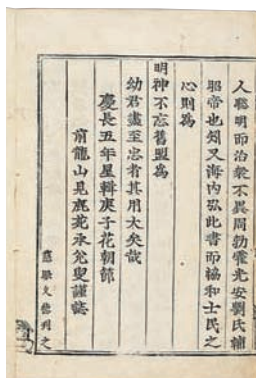 人聰明而治衆不異周勃霍光安劉氏輔
昭帝也矧又海内弘此書而協和士民之
心則為
明神不忘舊盟為
幼君盡至忠者其用大矣哉
慶長五年星輯庚子花朝節
前龍山見鹿苑承兌叟謹誌
慈眼久德刊之